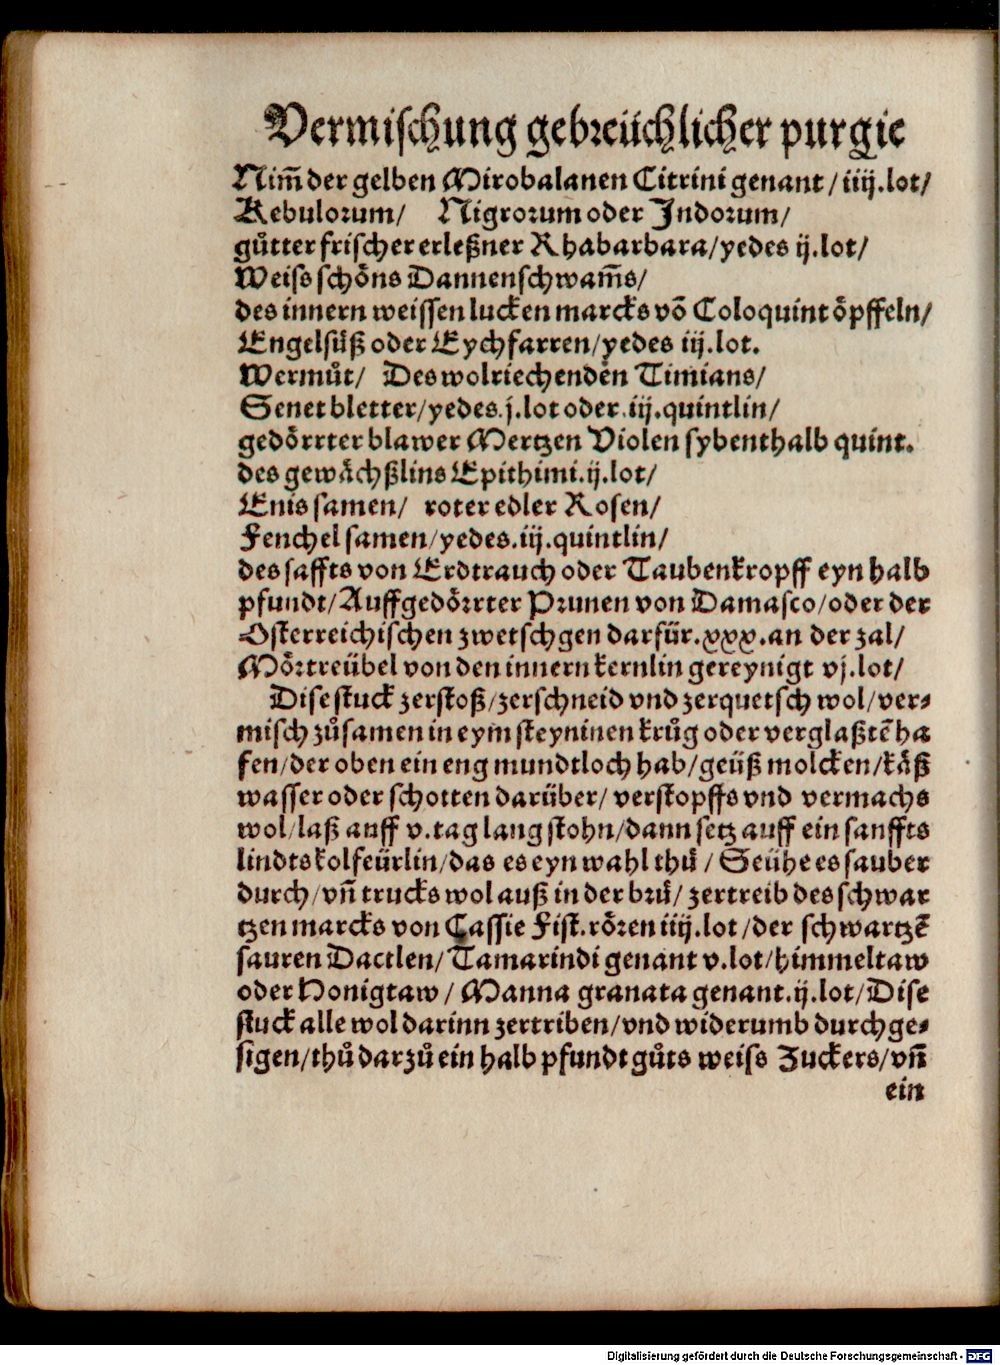 Vermischung gebreüchlicher purgie
Nim̃ der gelben Mirobalanen Citrini genant / iiij.lot/
Kebulorum/ Nigrorum oder Indorum/
gůtter frischer erleßner Rhabarbara/yedes ij.lot/
Weiss schöns Dannenschwam̃s/
des innern weissen lucken marcks võ Coloquint öpffeln/
Engelsůß oder Eychfarren/yedes iij.lot.
Wermůt/ Des wolriechenden Timians/
Senet bletter/yedes.j.lot oder.iij.quintlin/
gedörrter blawer Mertzen Violen sybenthalb quint.
des gewächßlins Epithimi.ij.lot/
Enis samen/ roter edler Rosen/
Fenchel samen/yedes.iij.quintlin/
des saffts von Erdtrauch oder Taubenkropff eyn halb
pfundt/Auffgedörrter Prunen von Damasco/oder der
Osterreichischen zwetschgen darfür.xxx.an der zal/
Mörtreübel von den innern kernlin gereynigt vj.lot/
Dise stuck zerstoß/zerschneid vnd zerquetsch wol/ver-
misch zůsamen in eym steyninen krůg oder verglaßtẽ ha
fen/der oben ein eng mundtloch hab/geüß molcken/käß
wasser oder schotten darüber/ verstopffs vnd vermachs
wol/laß auff v.tag lang stohn/dann setz auff ein sanffts
lindts kolfeürlin/das es eyn wahl thů / Seühe es sauber
durch/vñ trucks wol auß in der brů/ zertreib des schwar
tzen marcks von Cassie Fist.rören iiij.lot /der schwartzẽ
sauren Dactlen/Tamarindi genant v.lot/himmeltaw
oder Honigtaw / Manna granata genant.ij.lot/Dise
stuck alle wol darinn zertriben/vnd widerumb durchge-
sigen/thů darzů ein halb pfundt gůts weiss Zuckers/vñ
ein
Digitalisierung gefördert durch die Deutsche Forschungsgemeinschaft - DFG